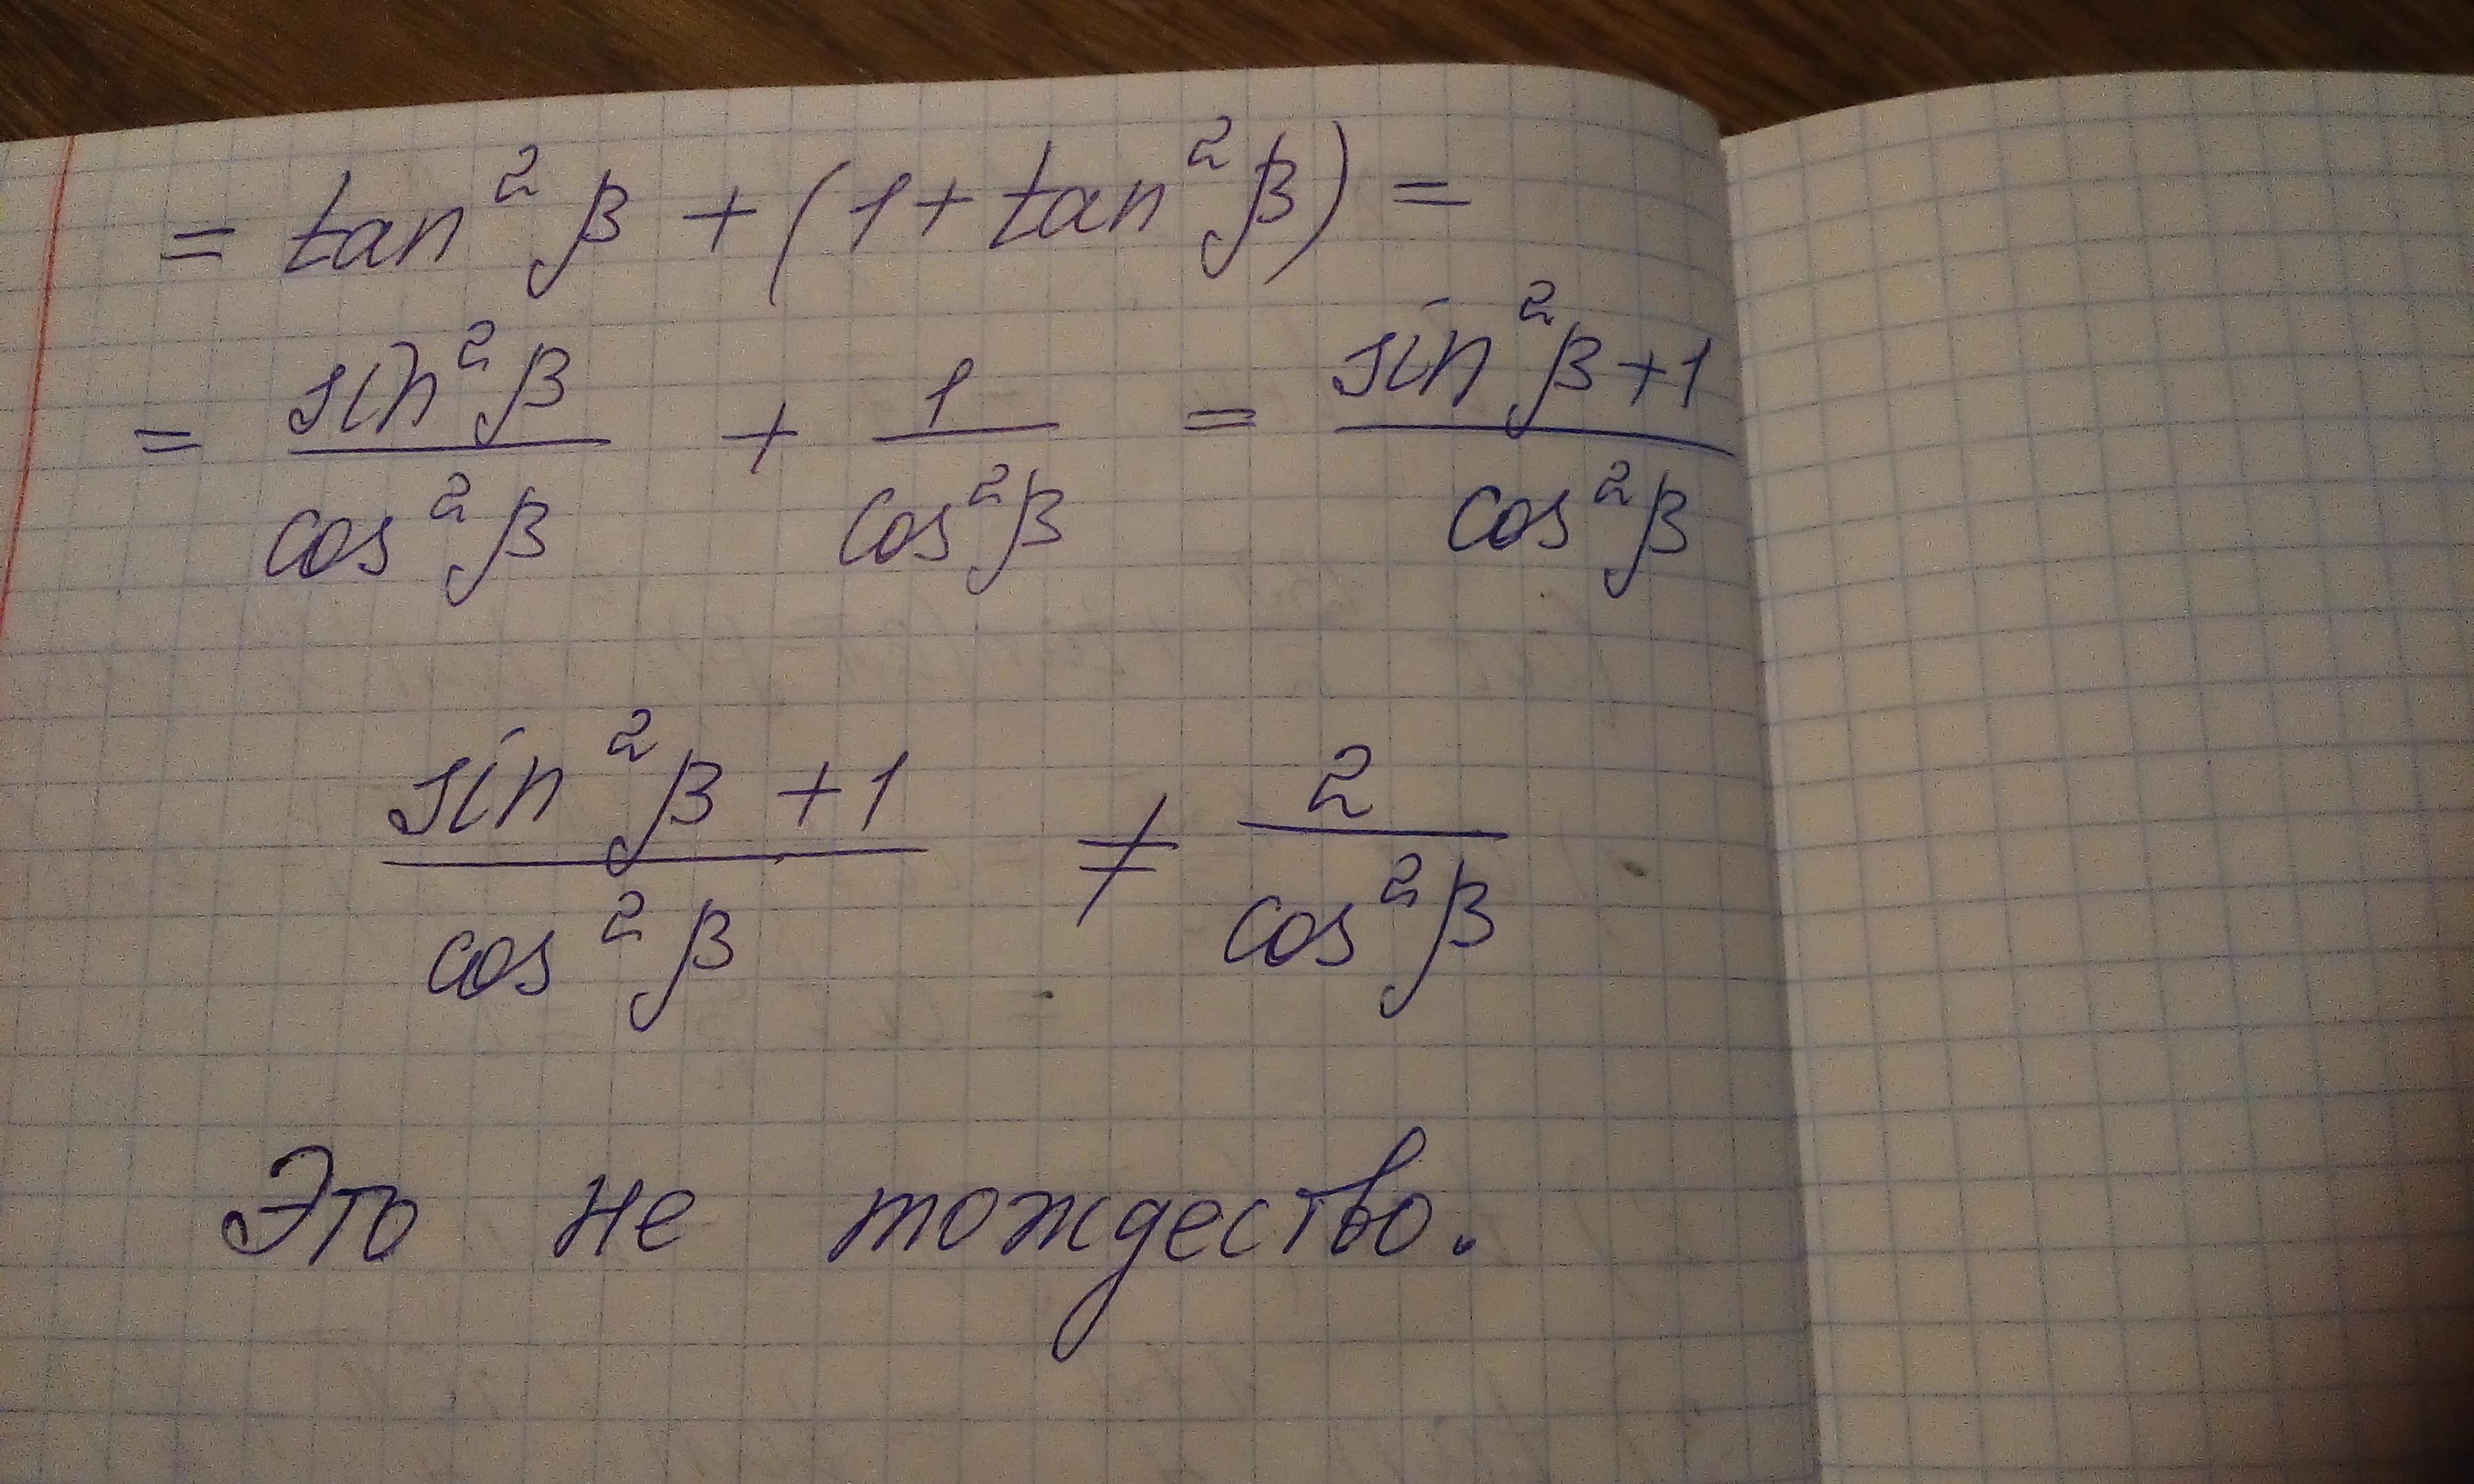 = tan² β + (1 + tan² β) =
= sin² β / cos² β + 1 / cos² β = sin² β + 1 / cos² β
sin² β + 1 / cos² β ≠ 2 / cos² β
Это не тождество.